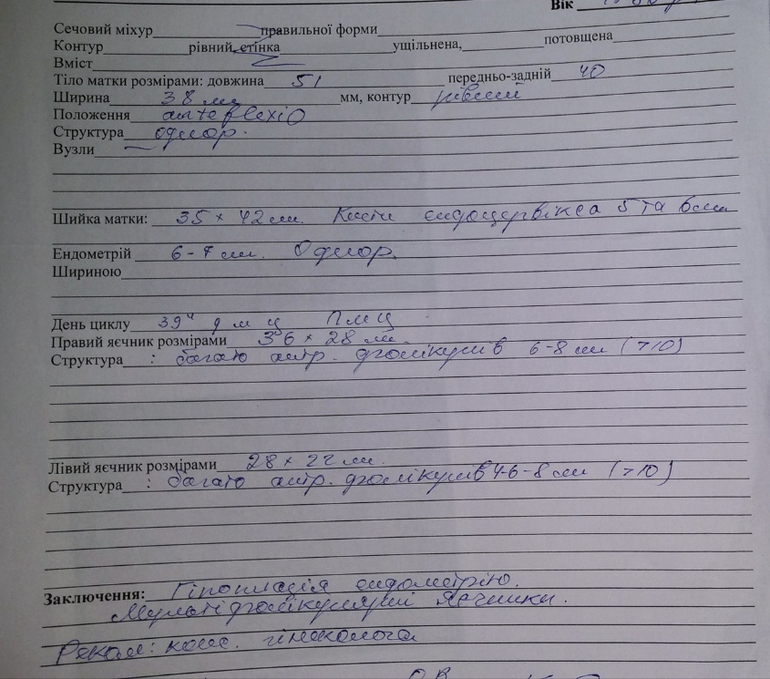 Вік
Сечовий міхур правильної форми
Контур рівний, стінка ущільнена, потовщена
Вміст
Тіло матки розмірами: довжина 51 передньо-задній 40
Ширина 38 мм, контур рівний
Положення anteflexio
Структура однор.
Вузли
Шийка матки: 35 × 42 мм. Кисти ендоцервікса 5 та 6мм
Ендометрій 6-7 мм. Однор.
Шириною
День циклу 39й д м ц ПМЦ
Правий яєчник розмірами 36 × 28 мм.
Структура : багато антр. фолікулів 6-8 мм (>10)
Лівий яєчник розмірами 28 × 22 мм.
Структура : багато антр. фолікулів 4-6-8 мм (>10)
Заключення: Гіпоплазія ендометрію.
Мультіфолікулярні яєчники.
Реком: конс. гінеколога